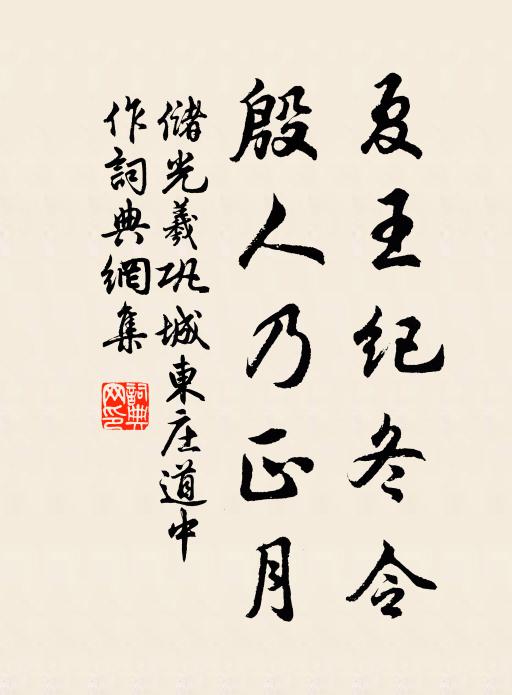 夏王纪冬令
殷人乃正月
储光羲巩城東庄道中
作詞典網集
詞典網印